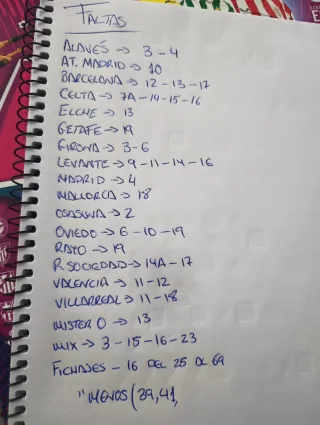 FALTAS
ALAVÉS → 3-4
AT. MADRID → 10
BARCELONA → 12-13-17
CELTA → 7A-14-15-16
ELCHE → 13
GETAFE → 19
GIRONA → 3-6
LEVANTE → 9-11-14-16
MADRID → 4
MALLORCA → 18
OSASUNA → 2
OVIEDO → 6-10-19
RAYO → 19
R. SOCIEDAD → 14A-17
VALENCIA → 11-12
VILLARREAL → 11-18
MISTER O → 13
MIX → 3-15-16-23
FICHAJES - 16 DEL 25 AL 69
"MENOS (39,41,